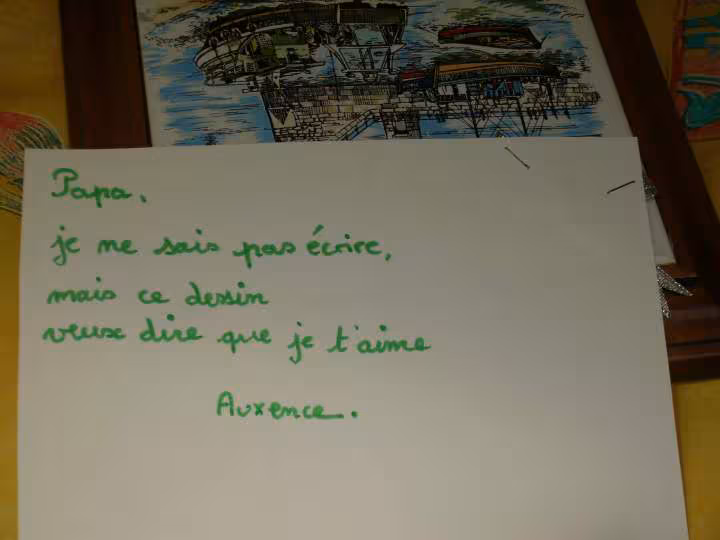 Papa,
je ne sais pas écrire,
mais ce dessin
veux dire que je t'aime
Auxence.